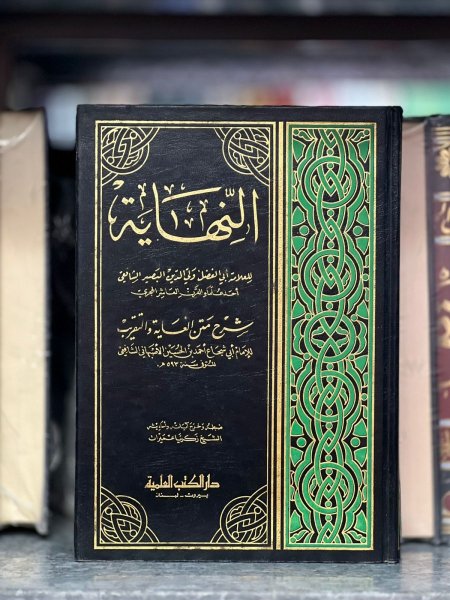 النِّهَاية
للعلامة أبي الفضل ولي الدين البصير الشافعي
أحد علماء القرن العاشر الهجري
شرح متن الغاية والتقريب
للإمام أبي شجاع أحمد بن الحسين الأصبهاني الشافعي
المتوفى سنة ٥٩٣ هـ.
ضبطه وخرج آياته وأحاديثه
الشيخ زكريا عميرات
دار الكتب العلمية
بيروت - لبنان